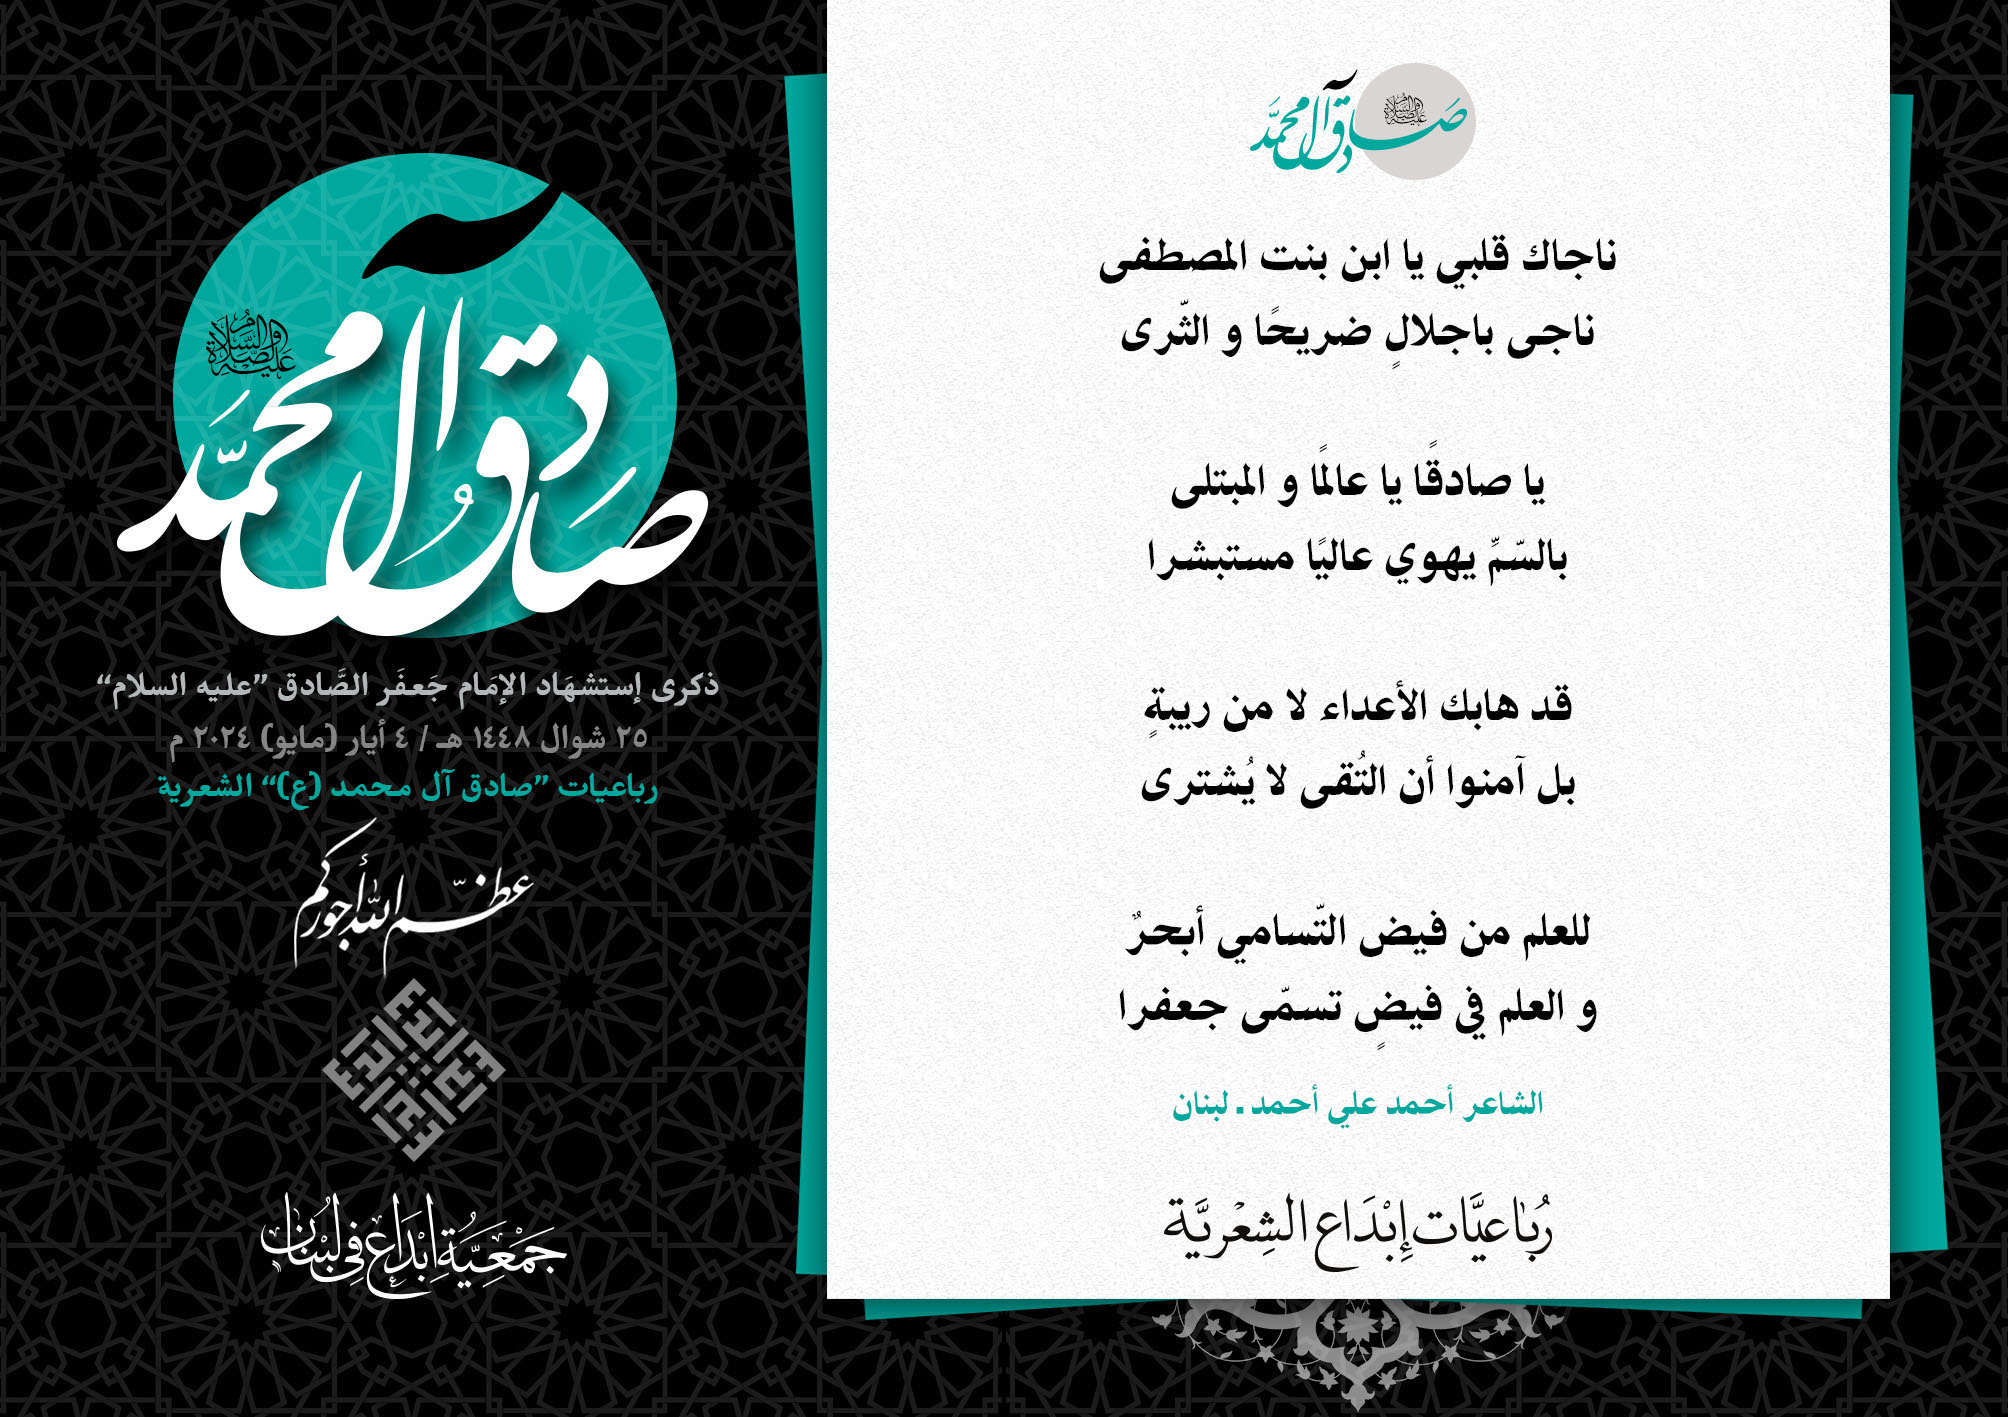 صادق آل محمد
عليه الصلاة والسلام
ناجاك قلبي يا ابن بنت المصطفى
ناجى باجلالٍ ضريحًا و الثّرى
يا صادقًا يا عالمًا و المبتلى
بالسّمِّ يهوي عاليًا مستبشرا
قد هابك الأعداء لا من ريبةٍ
بل آمنوا أن التُقى لا يُشترى
للعلم من فيض التّسامي أبحرٌ
و العلم في فيضٍ تسمّى جعفرا
الشاعر أحمد علي أحمد ـ لبنان
رُبَاعيَّات إِبْدَاع الشِعْريَّة
صَادِق آل محمَّد
عليه الصلاة والسلام
ذكرى إستشهَاد الإمَام جَعفَر الصَّادق ”عليه السلام“
٢٥ شوال ١٤٤٨ هـ / ٤ أيار (مايو) ٢٠٢٤ م
رباعيات ”صادق آل محمد (ع)“ الشعرية
عظّم الله أجوركم
جَمْعِيَّةِ اِبْدَاع فِي لُبْنَان